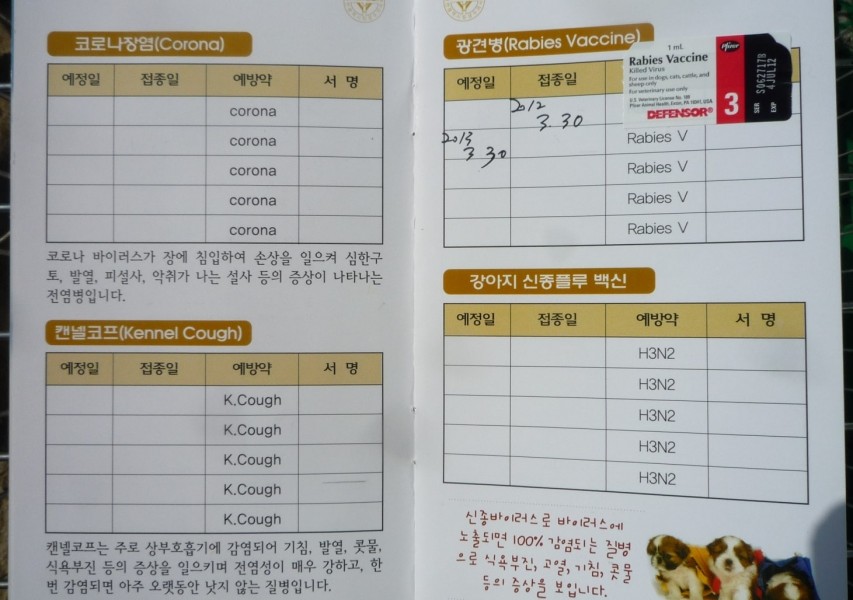 코로나장염(Corona)
예정일 접종일 예방약 서 명
corona
corona
corona
corona
corona
코로나 바이러스가 장에 침입하여 손상을 일으켜 심한구
토, 발열, 피설사, 악취가 나는 설사 등의 증상이 나타나는
전염병입니다.
캔넬코프(Kennel Cough)
예정일 접종일 예방약 서 명
K.Cough
K.Cough
K.Cough
K.Cough
K.Cough
캔넬코프는 주로 상부호흡기에 감염되어 기침, 발열, 콧물,
식욕부진 등의 증상을 일으키며 전염성이 매우 강하고, 한
번 감염되면 아주 오랫동안 낫지 않는 질병입니다.
광견병(Rabies Vaccine)
예정일 접종일
1 mL
Pfizer
Rabies Vaccine
Killed Virus
For use in dogs, cats, cattle, and
sheep only
For veterinary use only
U.S. Veterinary License No. 189
Pfizer Animal Health, Exton, PA 19341, USA
DEFENSOR® 3
SER S062717B
EXP 4JUL12
2012
3.30
2013
3 30
Rabies V
Rabies V
Rabies V
Rabies V
강아지 신종플루 백신
예정일 접종일 예방약 서 명
H3N2
H3N2
H3N2
H3N2
H3N2
신종바이러스로 바이러스에
노출되면 100% 감염되는 질병
으로 식욕부진, 고열, 기침, 콧물
등의 증상을 보입니다.